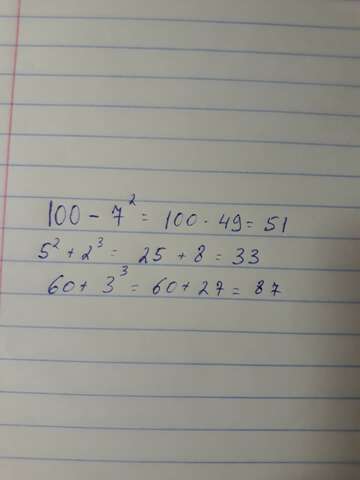 100 - 7² = 100 · 49 = 51
5² + 2³ = 25 + 8 = 33
60 + 3³ = 60 + 27 = 87